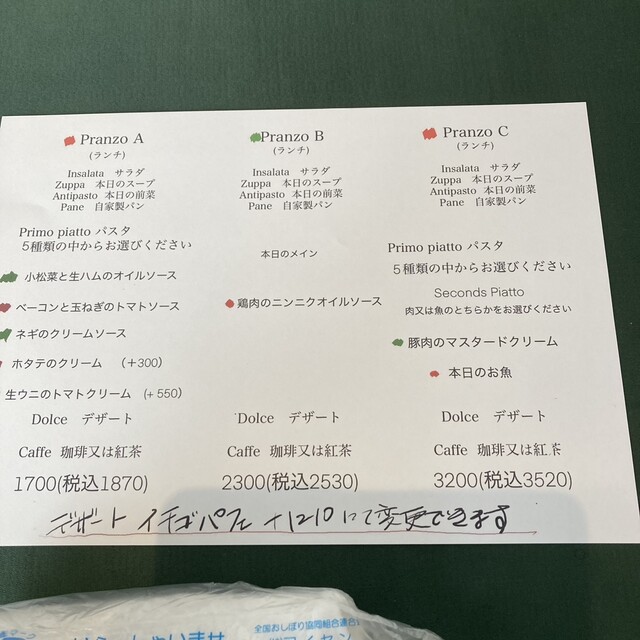 Pranzo A
(ランチ)
Insalata サラダ
Zuppa 本日のスープ
Antipasto 本日の前菜
Pane 自家製パン
Primo piatto パスタ
5種類の中からお選びください
小松菜と生ハムのオイルソース
ベーコンと玉ねぎのトマトソース
ネギのクリームソース
ホタテのクリーム (+300)
生ウニのトマトクリーム (+550)
Dolce デザート
Caffe 珈琲又は紅茶
1700(税込1870)
Pranzo B
(ランチ)
Insalata サラダ
Zuppa 本日のスープ
Antipasto 本日の前菜
Pane 自家製パン
本日のメイン
鶏肉のニンニクオイルソース
Dolce デザート
Caffe 珈琲又は紅茶
2300(税込2530)
Pranzo C
(ランチ)
Insalata サラダ
Zuppa 本日のスープ
Antipasto 本日の前菜
Pane 自家製パン
Primo piatto パスタ
5種類の中からお選びください
Seconds Piatto
肉又は魚のとちらかをお選びください
豚肉のマスタードクリーム
本日のお魚
Dolce デザート
Caffe 珈琲又は紅茶
3200(税込3520)
デザート イチゴパフェ +1210にて変更できます
全国おしぼり協同組合連合